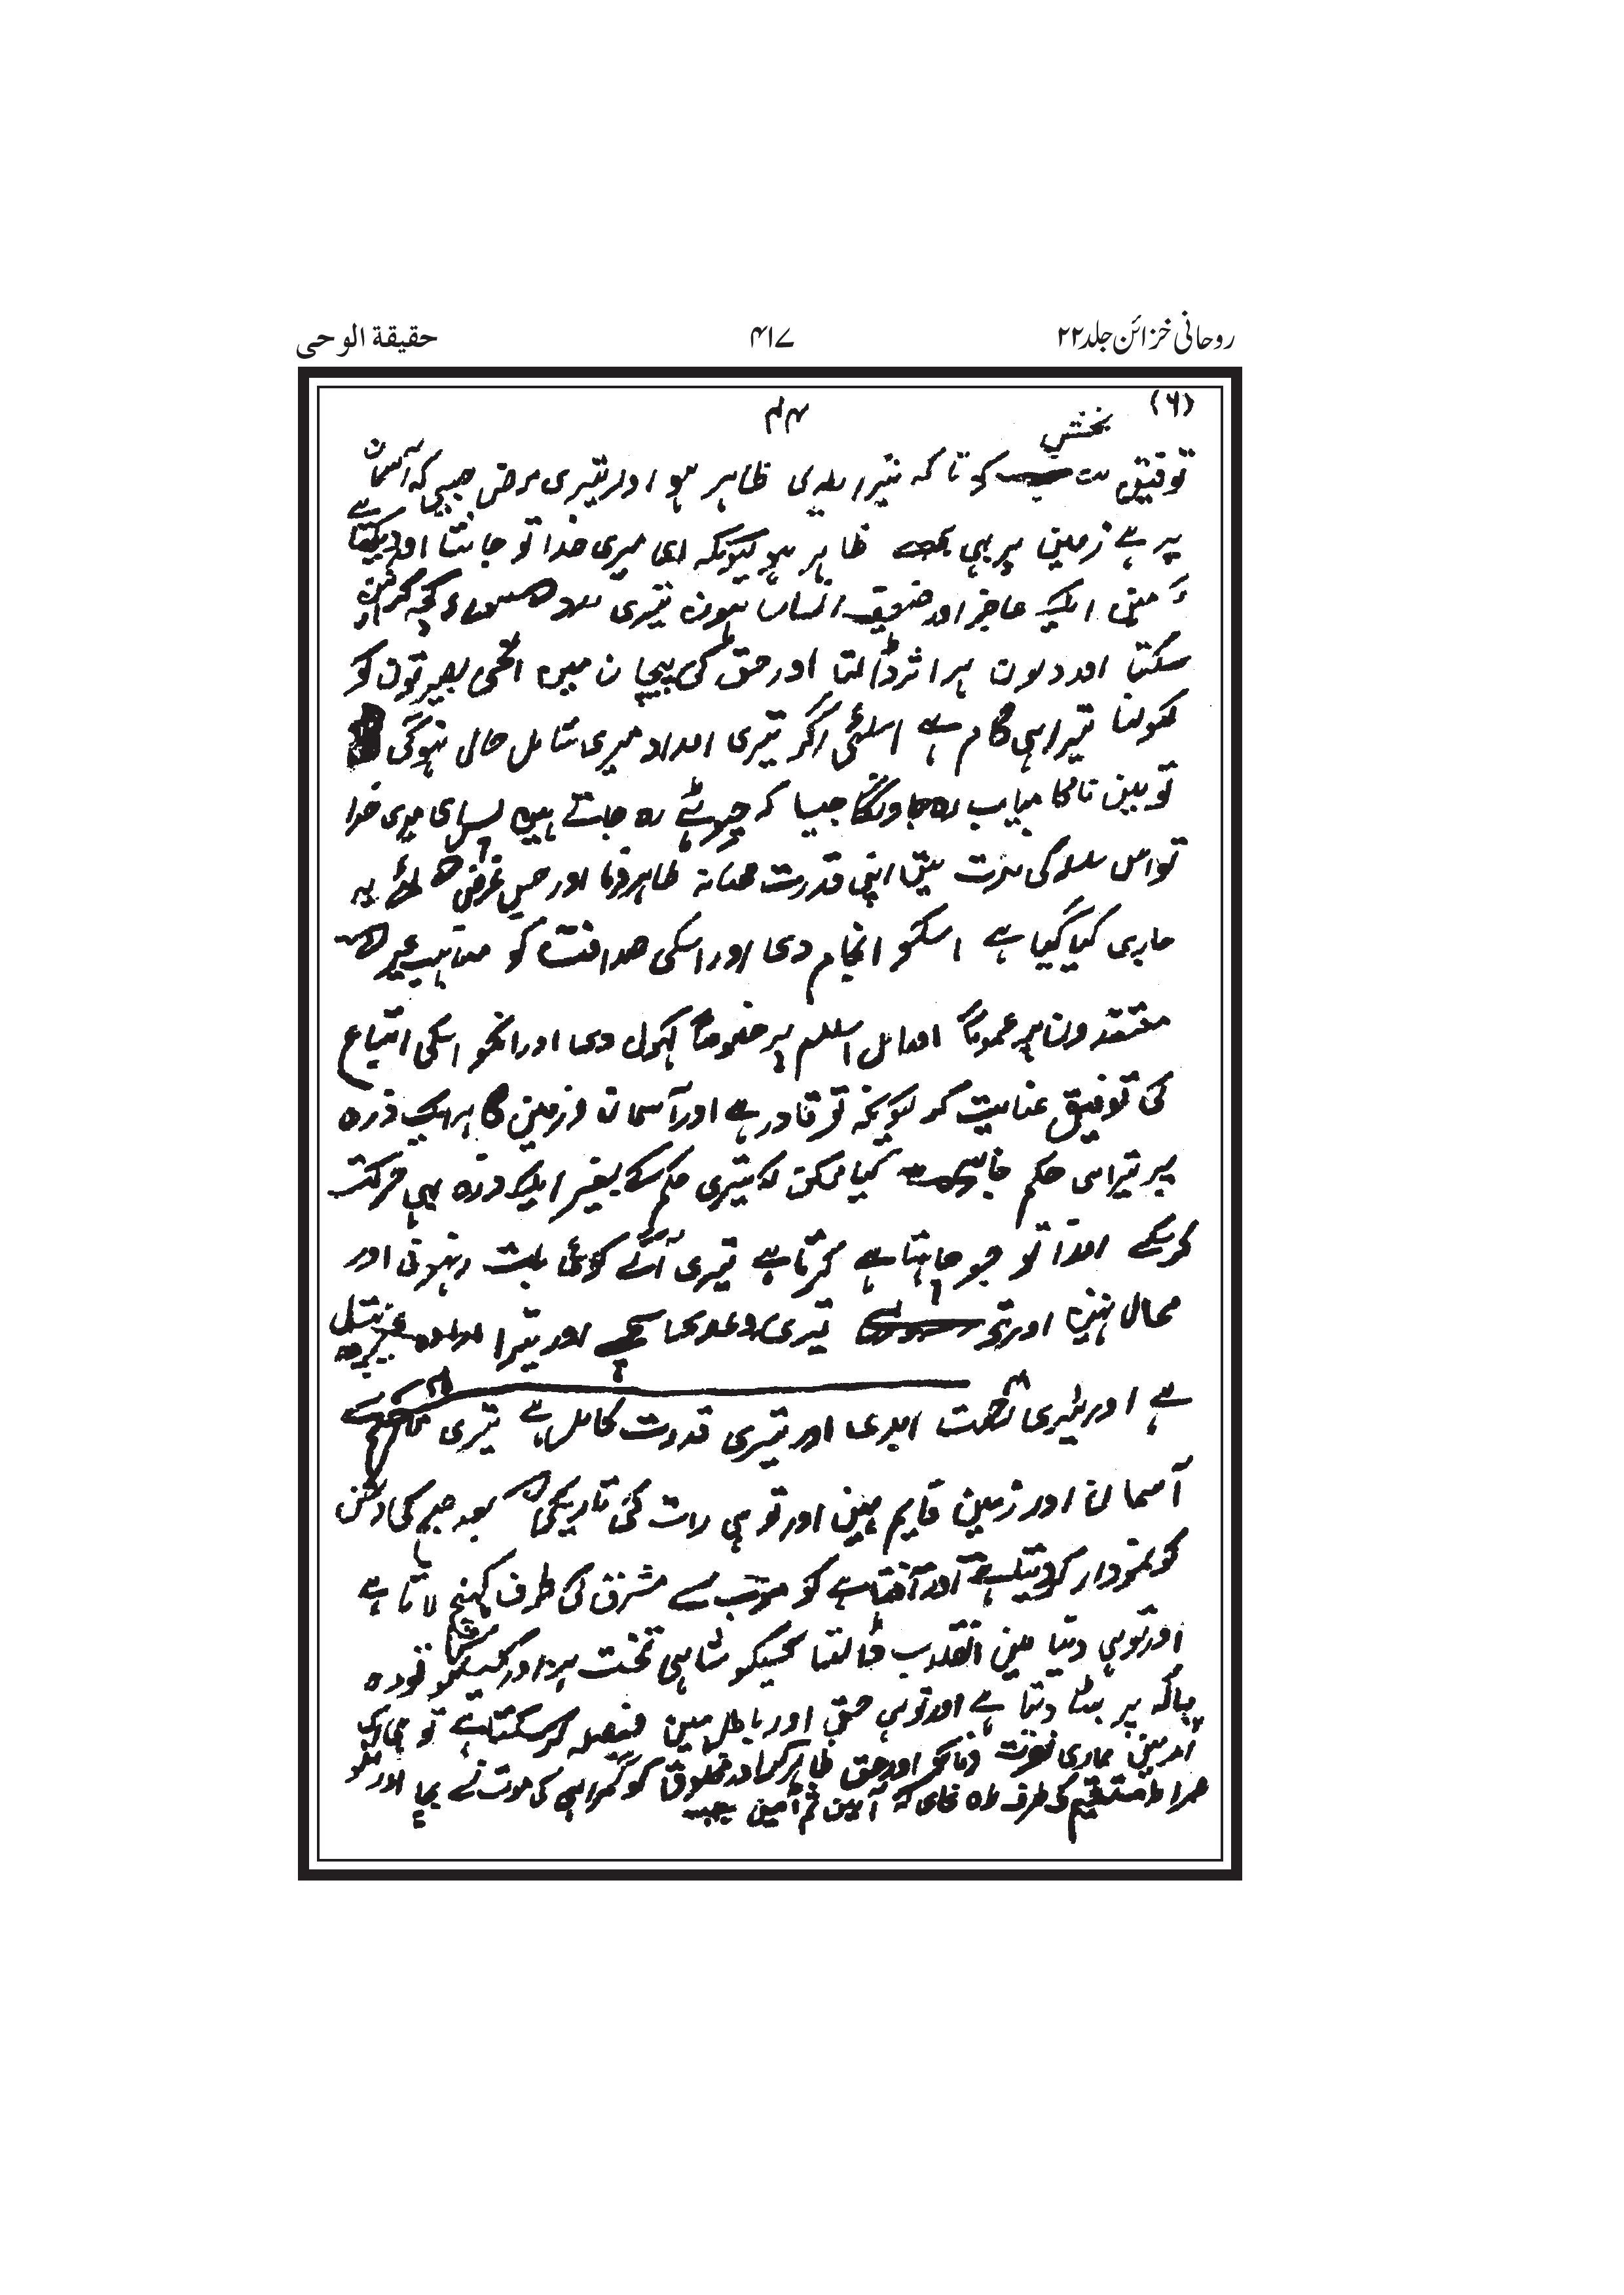 روحانی خزائن جلد ۲۲
۴۱۷
حقیقة الوحی
(۶)
بخش
توفیق کو تا کہ تیرا ظاہر ہو اور تیری مرضی جیسی کہ آسمان
پر ہے زمین پر بہی ظاہر ہو کیونکہ ای میری خدا تو جانتا اور دیکہتا ہے
کہ مین ایک عاجز اور ضعیف انسان ہون تیری کچہ نہین کر
سکتا اور دلون پر اثر ڈالتا اور حق کی پہچان مین انکی بصیرتون کو
کھولنا تیرا ہی کام ہے اسلئی اگر تیری امداد میری شامل حال نہوگی
تو مین ناکامیاب رہ جاونگا جیسا کہ جھوٹے رہ جاتے ہین پس ای میری خدا
تو اس سلسلہ کی نصرت مین اپنی قدرت ظاہر فرما اور جس غرض کے لئے یہ
جاری کیا گیا ہے اسکو انجام دی اور اسکی صداقت کو مذاہب غیر کے
معتقدون پر عموماً اور اہل اسلام پر خصوصاً کہول دی اور انکو اسکی اتباع
کی توفیق عنایت کر کیونکہ تو قادر ہے اور آسمان و زمین کا ہر ایک ذرہ
پر تیرا ہی حکم کیا ممکن کہ تیری حکم کے بغیر ایک ذرہ بہی حرکت
کر سکے تو جو چاہتا ہے کرتا ہے تیری آگے کوئی بات انہونی اور
محال نہین اور تیری وعدی سچے اور تیرا ارادہ غیر متبدل
ہے اور تیری رحمت ابدی اور تیری قدرت کامل ہے تیری حکم سے
آسمان اور زمین قایم ہین اور تو ہی رات کی تاریکی کے بعد صبح کی روشنی
کو نمودار کر دیتا ہے اور آفتاب کو مغرب سے مشرق کی طرف کہینچ لاتا ہے
اور تو ہی دنیا مین انقلاب ڈالتا کسیکو شاہی تخت پر اور کسیکو تودہ
خاک پر بٹھا دیتا ہے اور تو ہی حق اور باطل مین فیصلہ کر سکتا ہے
ہماری نصرت فرما اور حق ظاہر کر اور مخلوق کو گمراہی کی موت سے بچا اور
صراط مستقیم کی طرف راہ نمائی کر آمین ثم آمین